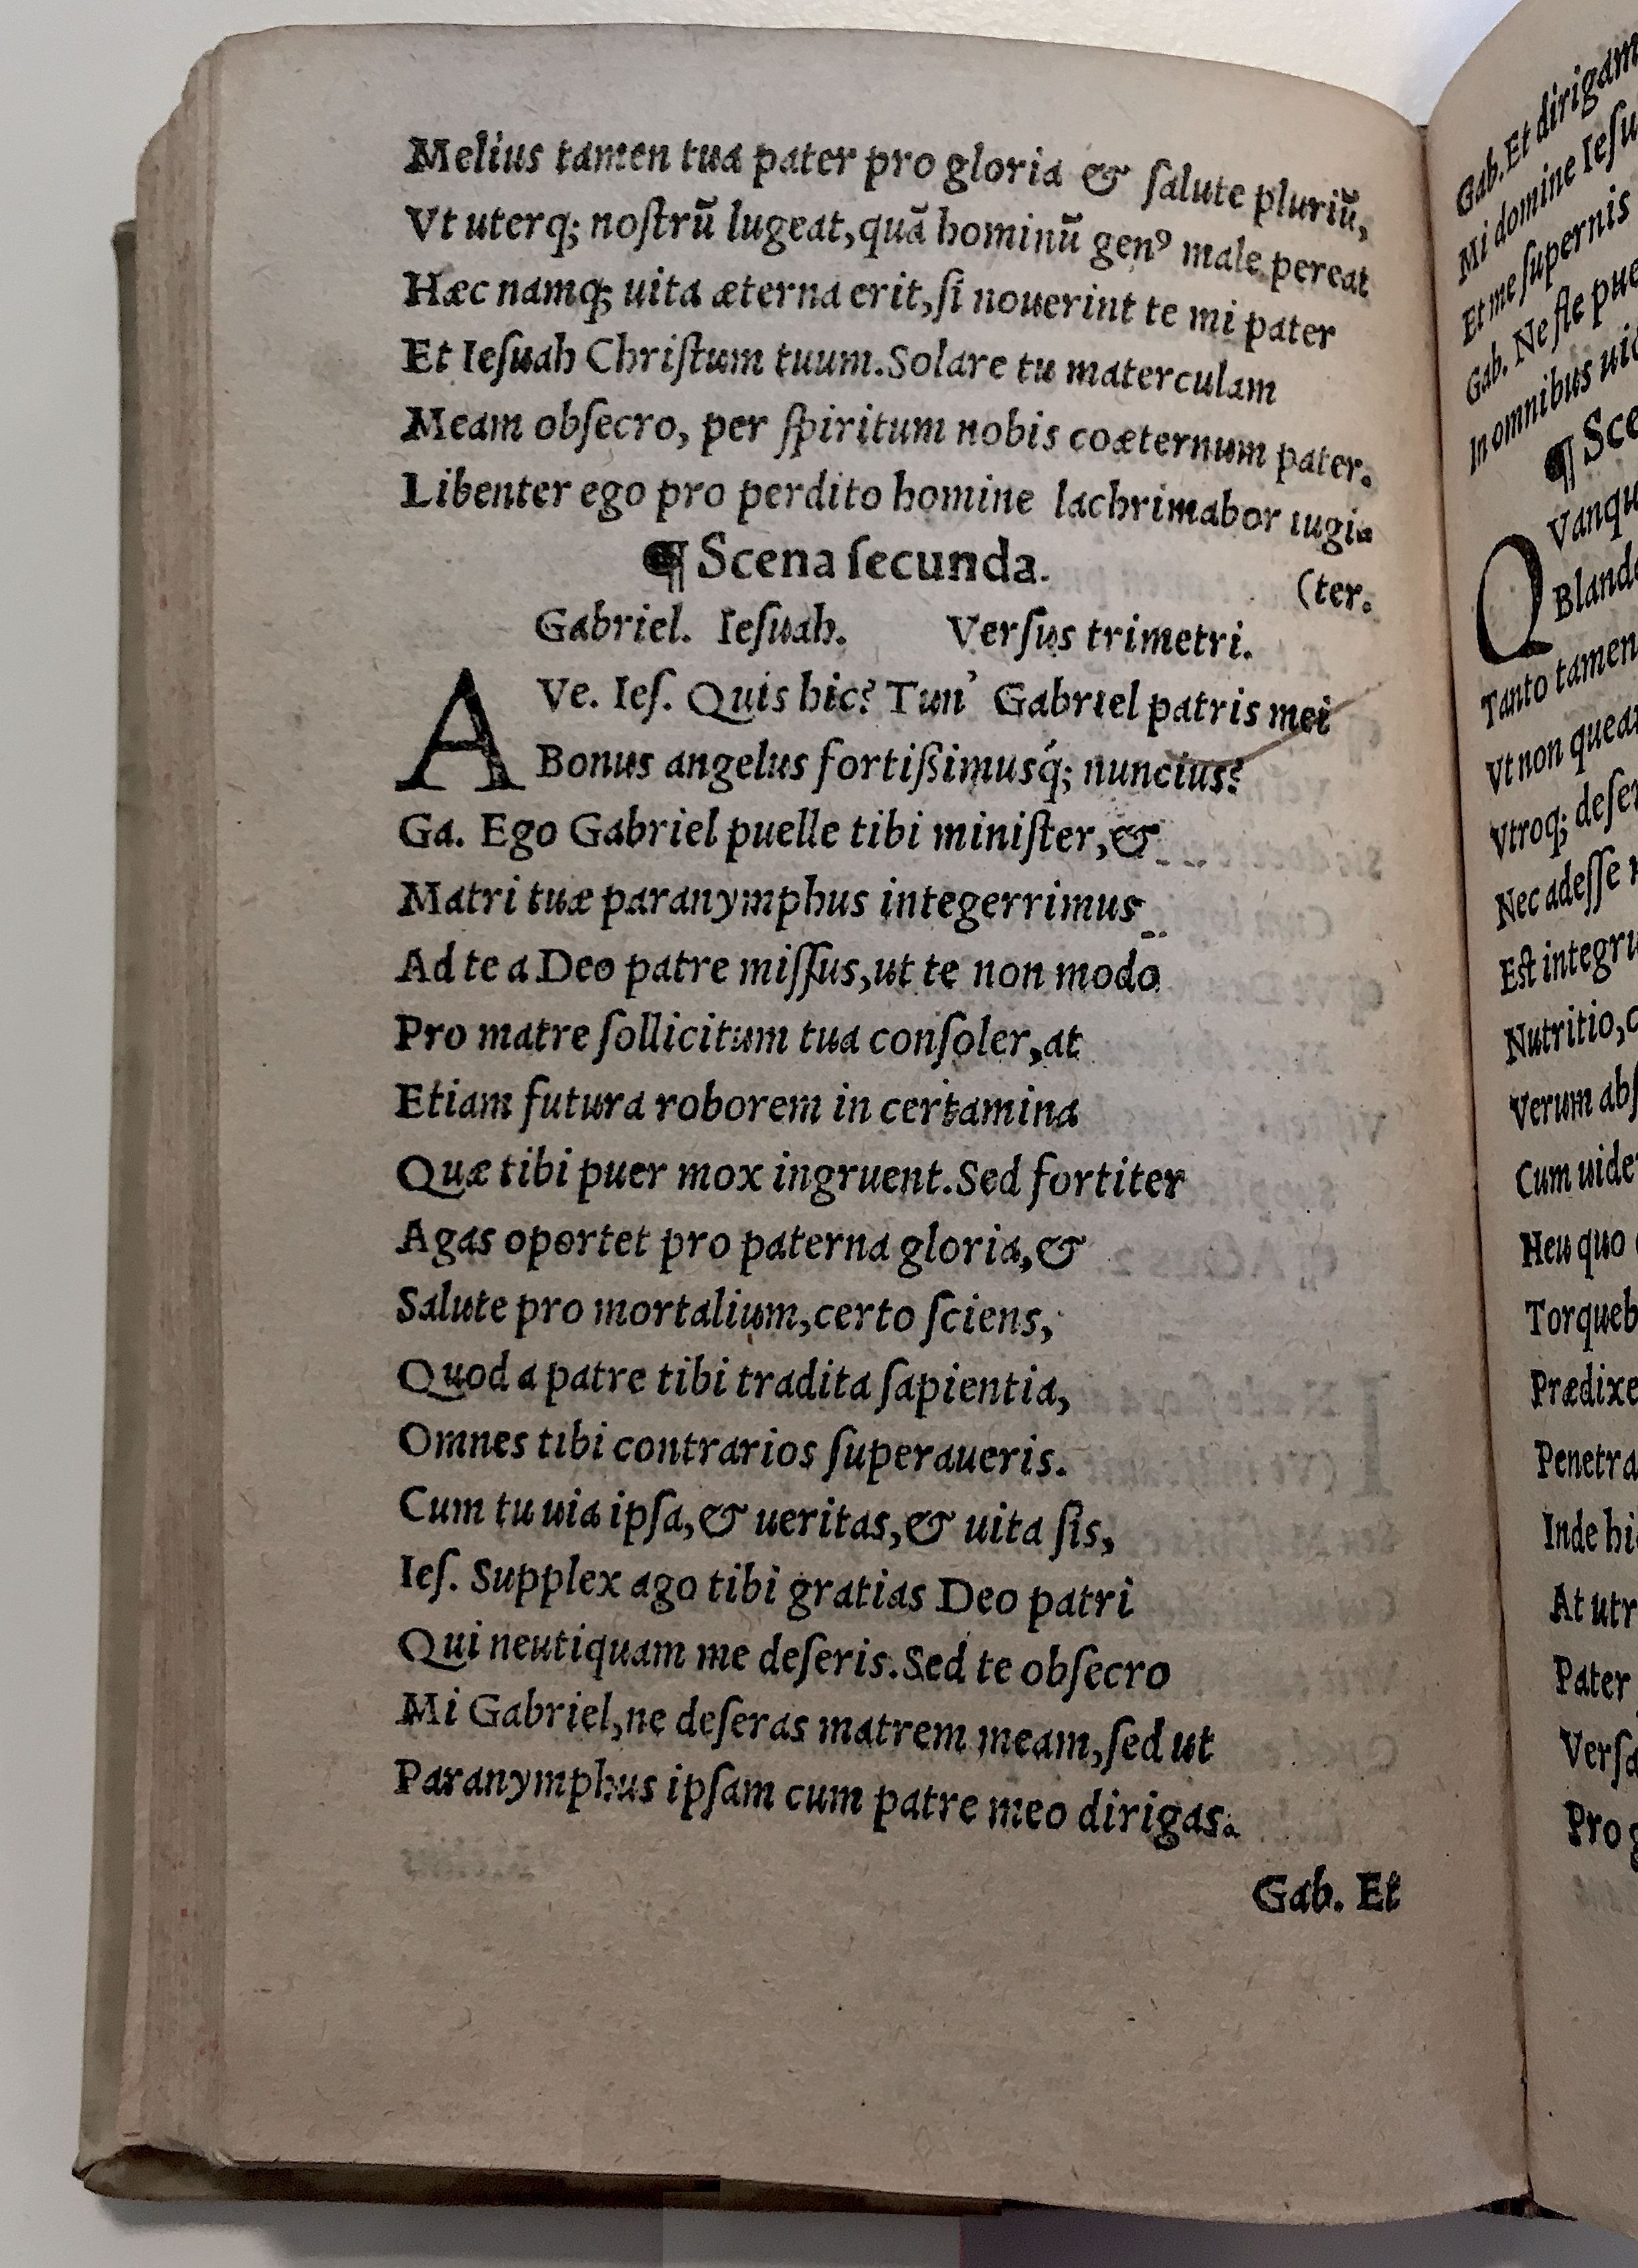 Melius tamen tua pater pro gloria & ſalute pluriũ,
Vt uterq; noſtrũ lugeat, quã hominũ genꝰ male pereat
Hæc namq; uita æterna erit, ſi nouerint te mi pater
Et Ieſuah Chriſtum tuum. Solare tu materculam
Meam obſecro, per ſpiritum nobis coæternum pater.
Libenter ego pro perdito homine lachrimabor iugi-
(ter.
¶ Scena ſecunda.
Gabriel. Ieſuah. Verſus trimetri.
AVe. Ieſ. Quis hic? Tun' Gabriel patris mei
Bonus angelus fortiſsimusq́; nuncius?
Ga. Ego Gabriel puelle tibi miniſter, &
Matri tuæ paranymphus integerrimus
Ad te a Deo patre miſſus, ut te non modo
Pro matre ſollicitum tua conſoler, at
Etiam futura roborem in certamina
Quæ tibi puer mox ingruent. Sed fortiter
Agas oportet pro paterna gloria, &
Salute pro mortalium, certo ſciens,
Quod a patre tibi tradita ſapientia,
Omnes tibi contrarios ſuperaueris.
Cum tu uia ipſa, & ueritas, & uita ſis,
Ieſ. Supplex ago tibi gratias Deo patri
Qui neutiquam me deſeris. Sed te obſecro
Mi Gabriel, ne deſeras matrem meam, ſed ut
Paranymphus ipſam cum patre meo dirigas.
Gab. Et
Gab. Et dirigam
Mi domine Ieſu
Et me ſupernis
Gab. Ne fle pue
In omnibus uid
¶ Sce
QVanqu
Bland
Tanto tamen
Vt non quea
Vtroq; deſer
Nec adeſſe
Eſt integru
Nutritio,
Verum abſ
Cum uide
Heu quo
Torqueb
Prædixe
Penetra
Inde hi
At utr
Pater
Verſa
Pro g